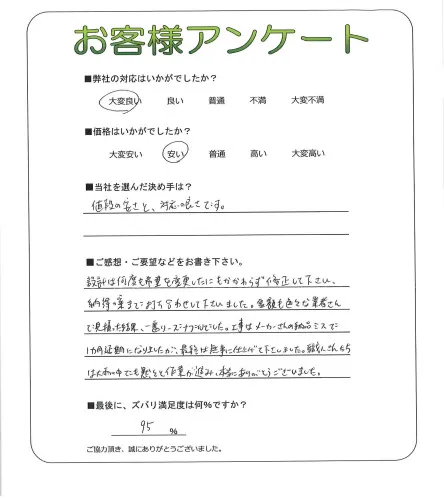 お客様アンケート
■弊社の対応はいかがでしたか?
大変良い 良い 普通 不満 大変不満
■価格はいかがでしたか?
大変安い 安い 普通 高い 大変高い
■当社を選んだ決め手は?
値段の安さと、対応の良さです。
■ご感想・ご要望などをお書き下さい。
設計は何度も希望を変更したにもかかわらず修正して下さい、
納得の案まで打ち合わせして下さいました。金額も色々な業者さん
で見積った結果、一番リーズナブルでした。工事はメーカーさんの納品ミスで
1ヵ月延期になりましたが、最終は無事に仕上げて下さいました。職人さんたち
は大雨の中でも黙々と作業が進み、本当にありがとうございました。
■最後に、ズバリ満足度は何%ですか?
95 %
ご協力頂き、誠にありがとうございました。